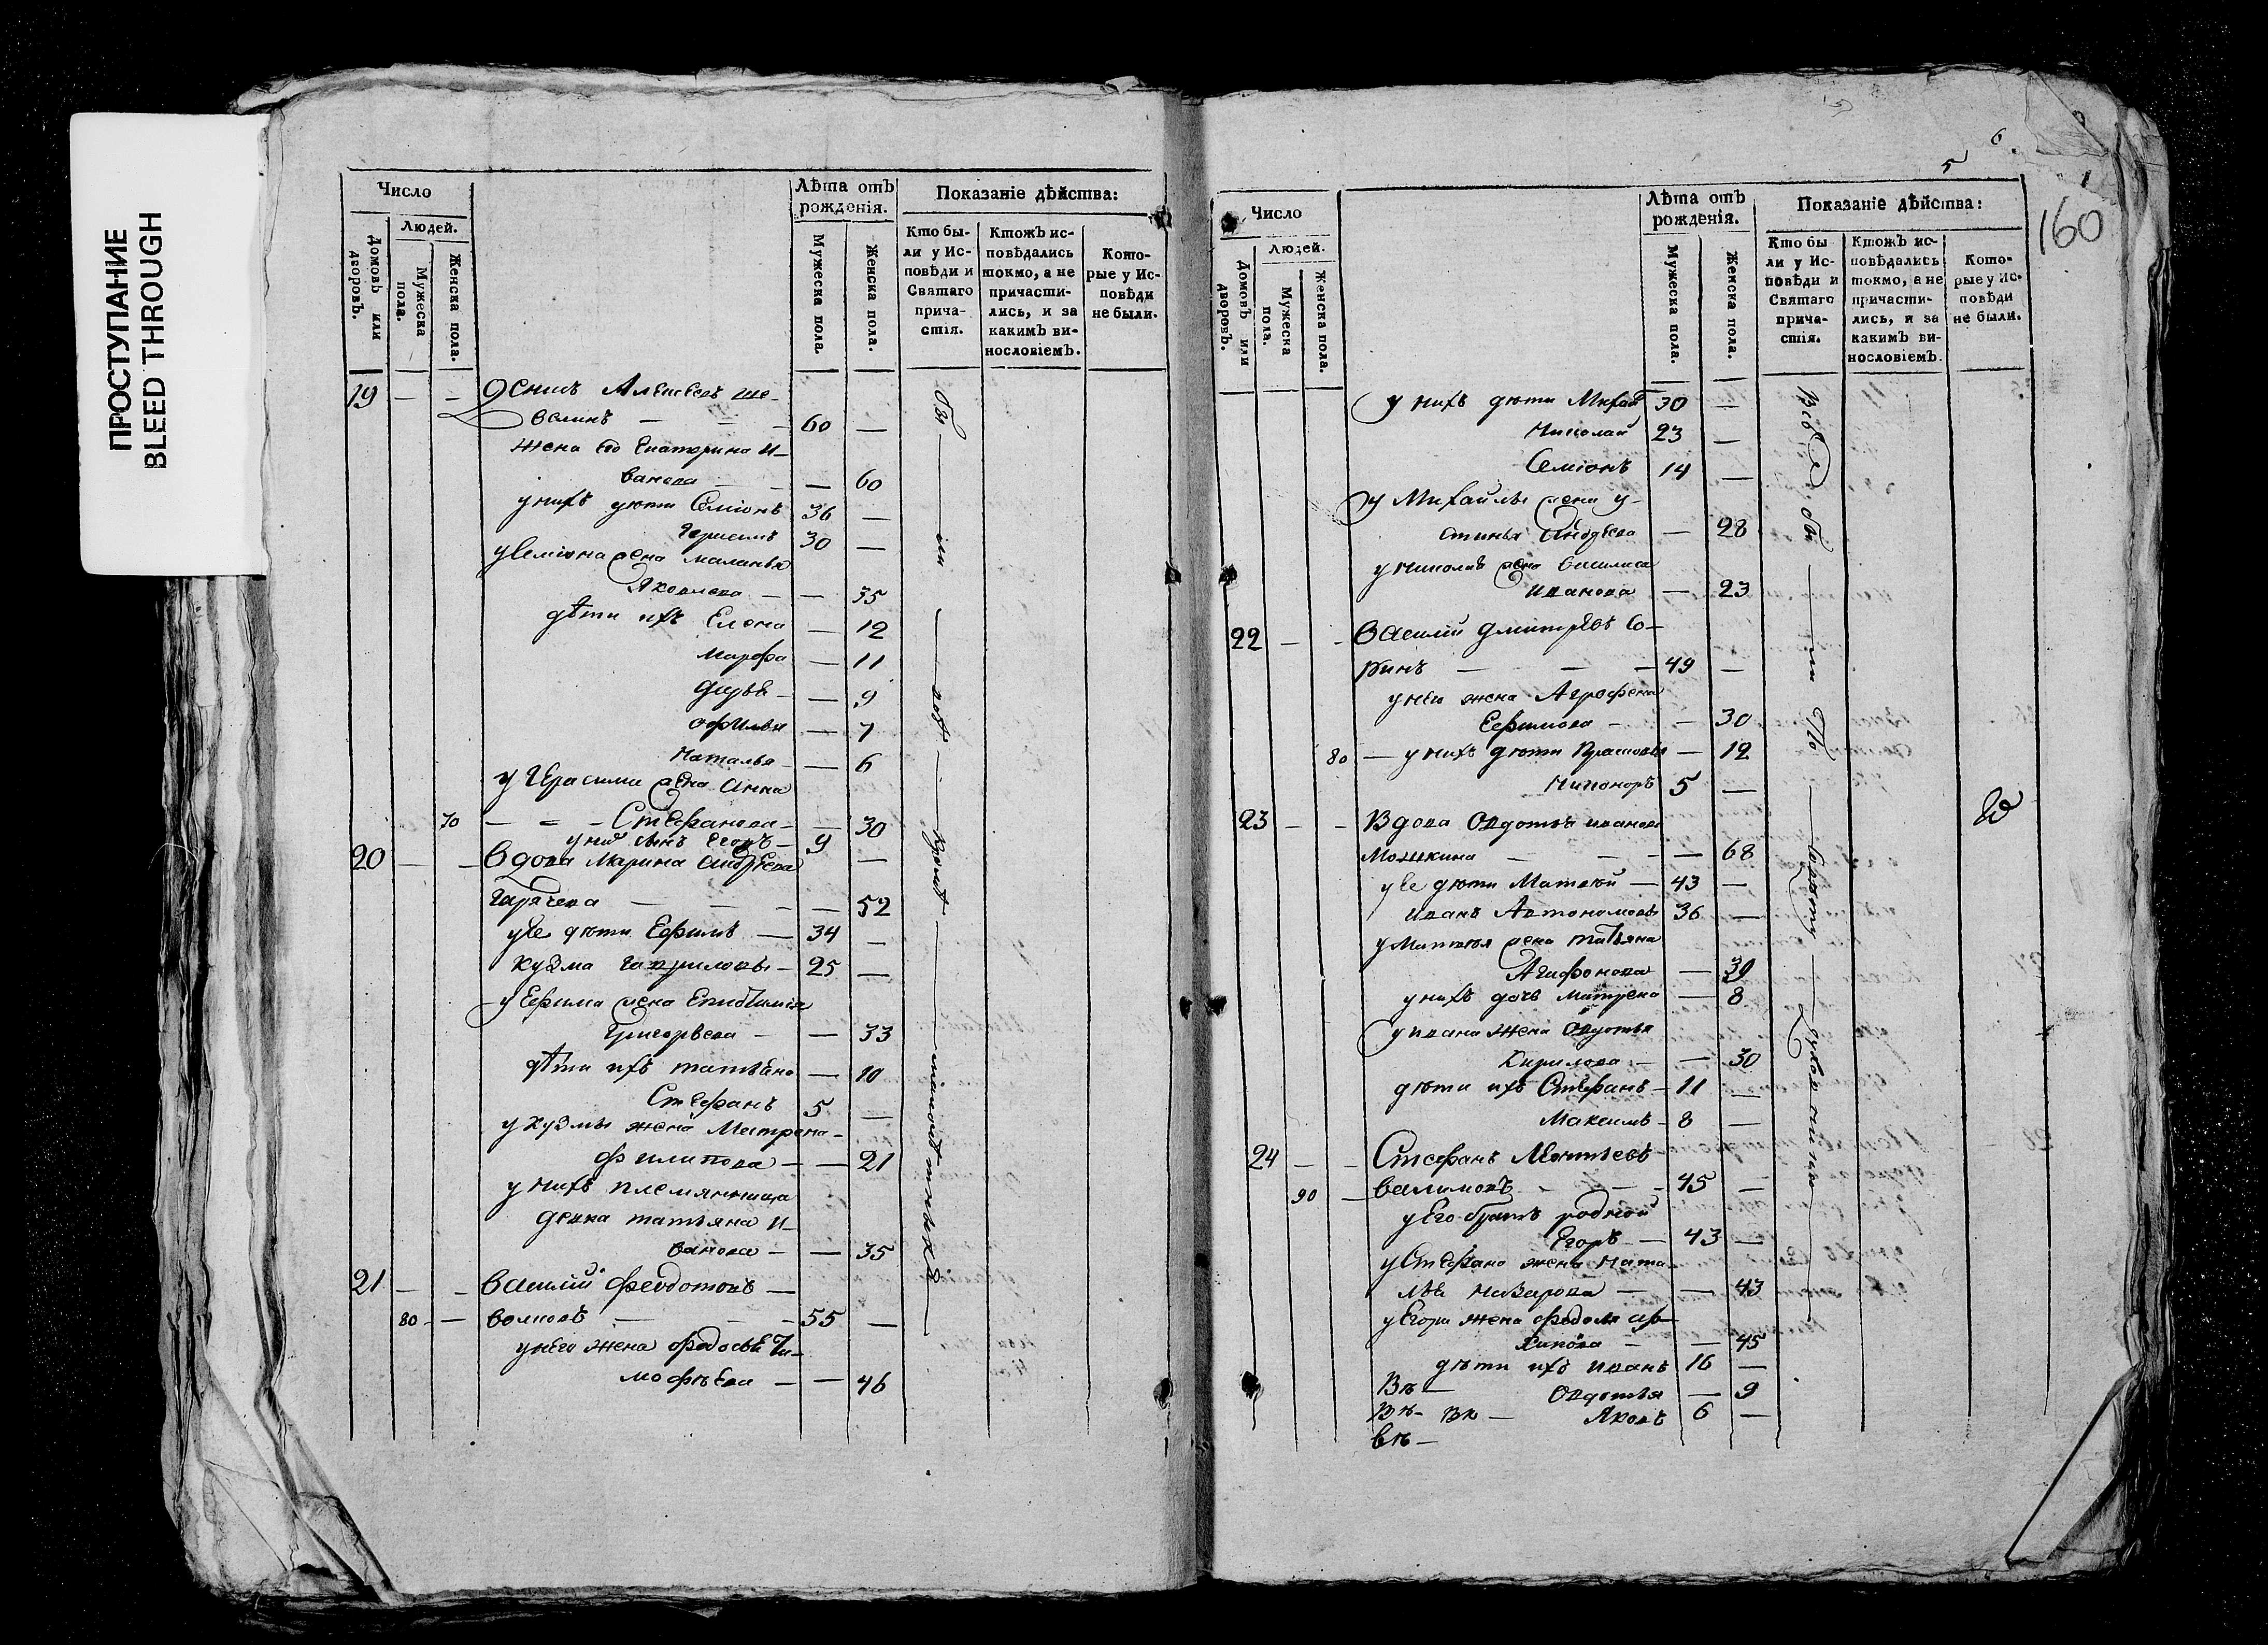 ПРОСТУПАНИЕ
BLEED THROUGH
Число
Людей.
Домовъ или дворовъ.
Мужеска пола.
Женска пола.
Лѣта отъ рожденія.
Мужеска пола.
Женска пола.
Показаніе дѣйства:
Кто бы-
ли у Ис-
повѣди и
Святаго
прича-
стія.
Ктожъ ис-
повѣдались
токмо, а не
причасти-
лись, и за
какимъ ви-
нословіемъ.
Кото-
рые у Ис-
повѣди
не были.
19 — — Денисъ Алексеевъ ше-
велинъ — — — 60 —
жена его Екатерина и-
ванова — — 60
у нихъ дѣти Семіонъ 36 —
Герасимъ 30 —
у Семіона жена маланья
Яковлева — — 35
дѣти ихъ Елена — 12
Марфа — 11
Дарья — 9
офимья — 7
Наталья — 6
у Герасима жена Анна
70 — — — Стефанова — — 30
у них сынъ Егоръ — 9 —
20 — — Вдова Марина Андреева
Горячева — — — — 52
у Ее дѣти Ефимъ — 34 —
Кузма Гавриловы — 25 —
у Ефима жена
Григорьева — — 33
дѣти ихъ татьяна — 10
Стефанъ 5 —
у Кузмы жена Матрена —
Филипова — — 21
у нихъ племянница
девка татьяна и-
ванова — — 35
21 — — Василий Феодотовъ —
80 — — волковъ — — — 55 —
у него жена Федосья Ти-
мофѣева — — 46
6
5
160
Число
Людей.
Домовъ или дворовъ.
Мужеска пола.
Женска пола.
Лѣта отъ рожденія.
Мужеска пола.
Женска пола.
Показаніе дѣйства:
Кто бы
ли у Ис-
повѣди и
Святаго
прича-
стія.
Ктожъ ис-
повѣдались
токмо, а не
причасти-
лись, и за
какимъ ви-
нословіемъ.
Кото-
рые у Ис-
повѣди
не были.
у нихъ дѣти Михаи 30 —
Николай 23 —
Семіонъ 14 —
у Михайлы жена у-
стинья Андреева — 28
у николая жена Василиса
иванова — 23
22 — — Василий Дмитревъ Со-
— — — 49 —
у него жена Агрофена
Ефимова — — 30
80 — у нихъ дѣти Прасковья — 12
Никоноръ 5 —
23 — — Вдова Овдотья иванова
Мошкина — — — — 68
у Ее дѣти Матвей — 43 —
иванъ Автономовы 36 —
у Матвея жена татьяна
Агафонова — 39
у нихъ дочь Матрена — 8
у ивана жена Овдотья
Кирилова — — 30
дѣти ихъ Стефанъ — 11 —
Максимъ — 8 —
24 — — Стефанъ Леонтьевъ
90 — — — 45 —
у Его братъ родной
Егоръ — 43 —
у Стефана жена Ната
лья Назарова — — 43
у Егора жена Федосья ар-
хипова — — 45
дѣти ихъ иванъ 16 —
Овдотья — 9
Яковъ 6 —